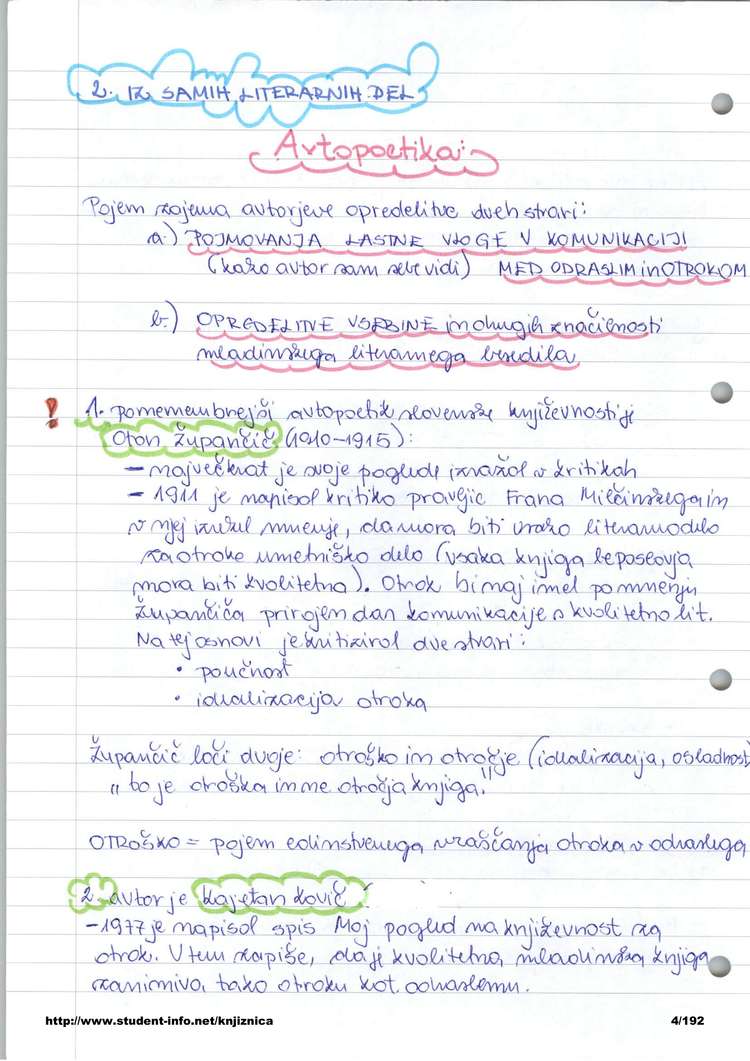 2. IZ SAMIH LITERARNIH DEL
Avtopoetika:
Pojem zajema avtorjeve opredelitve dveh stvari:
a.) POJMOVANJA LASTNE VLOGE V KOMUNIKACIJI
(kako avtor sam sebe vidi) MED ODRASLIM in OTROKOM
b.) OPREDELITVE VSEBINE in drugih značilnosti
mladinskega literarnega besedila
! 1. pomemembnejši avtopoetik slovenske književnosti je
Oton Župančič (1910-1915):
- največkrat je svoje poglede izražal v kritikah
- 1911 je napisal kritiko pravljic Frana Milčinskega in
v njej izrekel mnenje, da mora biti vsako literarno delo
za otroke umetniško delo (vsaka knjiga leposlovja
mora biti kvalitetna). Otrok bi naj imel po mnenju
Župančiča prirojen dan komunikacije s kvalitetno lit.
Na tej osnovi je kritiziral dve stvari:
• poučnost
• idealizacija otroka
Župančič loči dvoje: otroško in otročje (idealizacija, osladnost
" to je otroška in ne otročja knjiga."
OTROŠKO = pojem edinstvenega vraščanja otroka v odraslega
2. avtor je Kajetan Kovič
- 1977 je napisal spis Moj pogled na književnost za
otrok. V tem zapiše, da je kvalitetna mladinska knjiga
zanimiva tako otroku kot odraslemu.
http://www.student-info.net/knjiznica
4/192